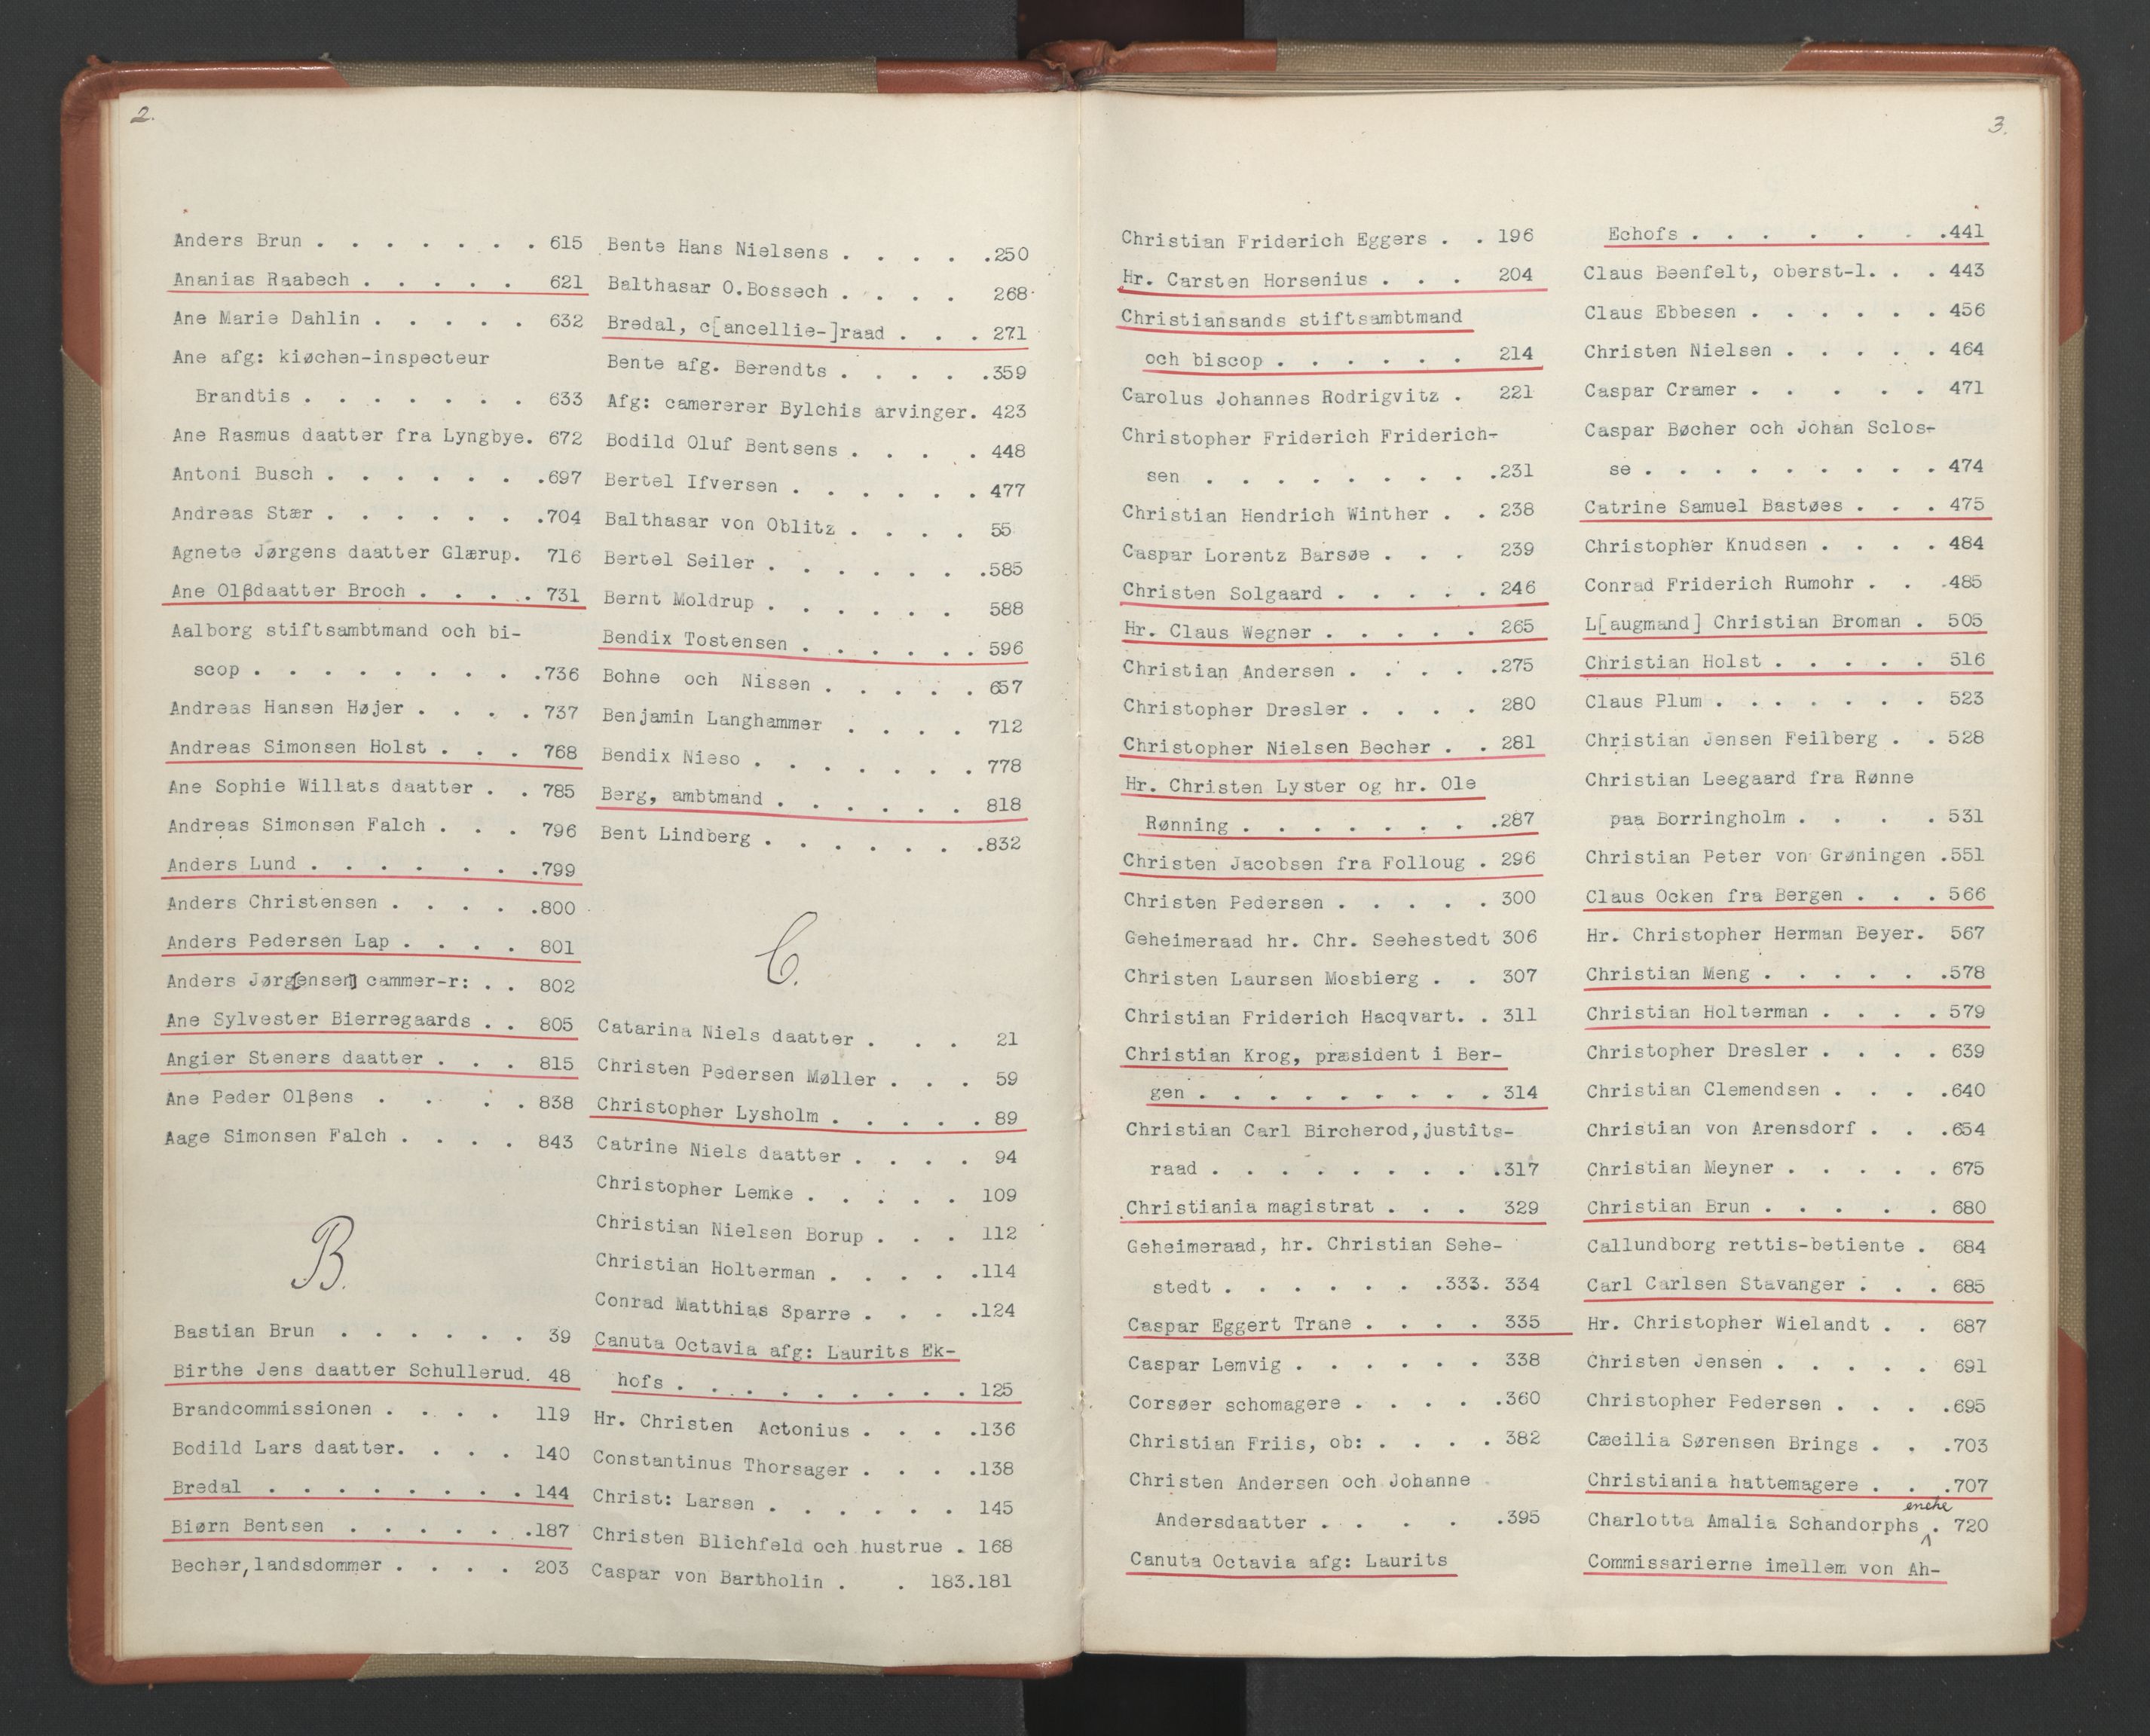 2.
Anders Brun . . . . . . . 615
Ananias Raabech . . . . . 621
Ane Marie Dahlin . . . . . 632
Ane afg: kiøchen-inspecteur
Brandtis . . . . . . . 633
Ane Rasmus daatter fra Lyngbye. 672
Antoni Busch . . . . . . .697
Andreas Stær . . . . . . .704
Agnete Jørgens daatter Glærup. 716
Ane Olβdaatter Broch . . . . 731
Aalborg stiftsambtmand och bi-
scop . . . . . . . . .736
Andreas Hansen Højer . . . . 737
Andreas Simonsen Holst . . . 768
Ane Sophie Willats daatter . . 785
Andreas Simonsen Falch . . . 796
Anders Lund . . . . . . .799
Anders Christensen . . . . .800
Anders Pedersen Lap . . . . 801
Anders Jørg[ensen] cammer-r: . . 802
Ane Sylvester Bierregaards . . 805
Angier Steners daatter . . . 815
Ane Peder Olβens . . . . 838
Aage Simonsen Falch . . . . 843
B.
Bastian Brun . . . . . . 39
Birthe Jens daatter Schullerud. 48
Brandcommissionen . . . . 119
Bodild Lars daatter. . . . 140
Bredal . . . . . . . . 144
Biørn Bentsen . . . . . .187
Becher, landsdommer . . . . 203
Bente Hans Nielsens . . . . .250
Balthasar O.Bossech . . . . 268
Bredal, c[ancellie-]raad . . . 271
Bente afg. Berendts . . . . .359
Afg: camererer Bylchis arvinger. 423
Bodild Oluf Bentsens . . . . 448
Bertel Ifversen . . . . . . 477
Balthasar von Oblitz . . . . 55
Bertel Seiler . . . . . . .585
Bernt Moldrup . . . . . . 588
Bendix Tostensen . . . . . . 596
Bohne och Nissen . . . . . 657
Benjamin Langhammer . . . . 712
Bendix Nieso . . . . . . . 778
Berg, ambtmand . . . . . . 818
Bent Lindberg . . . . . . .832
C.
Catarina Niels daatter . . . 21
Christen Pedersen Møller . . . 59
Christopher Lysholm . . . . . 89
Catrine Niels daatter . . . . 94
Christopher Lemke . . . . . 109
Christian Nielsen Borup . . . 112
Christian Holterman . . . . .114
Conrad Matthias Sparre . . . .124
Canuta Octavia afg: Laurits Ek-
hofs . . . . . . . . . 125
Hr. Christen Actonius . . . .136
Constantinus Thorsager . . . .138
Christ: Larsen . . . . . . 145
Christen Blichfeld och hustrue . 168
Caspar von Bartholin . . 183.181
3.
Christian Friderich Eggers . . 196
Hr. Carsten Horsenius . . . 204
Christiansands stiftsambtmand
och biscop . . . . . . 214
Carolus Johannes Rodrigvitz . 221
Christopher Friderich Friderich-
sen . . . . . . . . .231
Christian Hendrich Winther . . 238
Caspar Lorentz Barsøe . . . 239
Christen Solgaard . . . . . 246
Hr. Claus Wegner . . . . . 265
Christian Andersen . . . . .275
Christopher Dresler . . . . 280
Christopher Nielsen Becher . . 281
Hr. Christen Lyster og hr. Ole
Rønning . . . . . . . .287
Christen Jacobsen fra Folloug . 296
Christen Pedersen . . . . . 300
Geheimeraad hr. Chr. Seehestedt 306
Christen Laursen Mosbierg . . 307
Christian Friderich Hacqvart. . 311
Christian Krog, præsident i Ber-
gen . . . . . . . . . 314
Christian Carl Bircherod, justits-
raad . . . . . . . . .317
Christiania magistrat . . . 329
Geheimeraad, hr. Christian Sehe-
stedt . . . . . . .333. 334
Caspar Eggert Trane . . . . 335
Caspar Lemvig . . . . . . 338
Corsøer schomagere . . . . .360
Christian Friis, ob: . . . . 382
Christen Andersen och Johanne
Andersdaatter . . . . .395
Canuta Octavia afg: Laurits
Echofs . . . . . . . .441
Claus Beenfelt, oberst-l. . . 443
Claus Ebbesen . . . . . . 456
Christen Nielsen . . . . . 464
Caspar Cramer . . . . . 471
Caspar Bøcher och Johan Sclos-
se . . . . . . . . . 474
Catrine Samuel Bastøes . . . 475
Christopher Knudsen . . . . 484
Conrad Friderich Rumohr . . .485
L[augmand] Christian Broman . 505
Christian Holst . . . . . 516
Claus Plum . . . . . . . 523
Christian Jensen Feilberg . . 528
Christian Leegaard fra Rønne
paa Borringholm . . . . 531
Christian Peter von Grøningen .551
Claus Ocken fra Bergen . . . 566
Hr. Christopher Herman Beyer. 567
Christian Meng . . . . . .578
Christian Holterman . . . . 579
Christopher Dresler . . . . 639
Christian Clemendsen . . . .640
Christian von Arensdorf . . .654
Christian Meyner . . . . . 675
Christian Brun . . . . . 680
Callundborg rettis-betiente . 684
Carl Carlsen Stavanger . . . 685
Hr. Christopher Wielandt . . 687
Christen Jensen . . . . . 691
Christopher Pedersen . . . .695
Cæcilia Sørensen Brings . . .703
Christiania hattemagere . . .707
enche
Charlotta Amalia Schandorphs . 720
Commissarierne imellem von Ah-